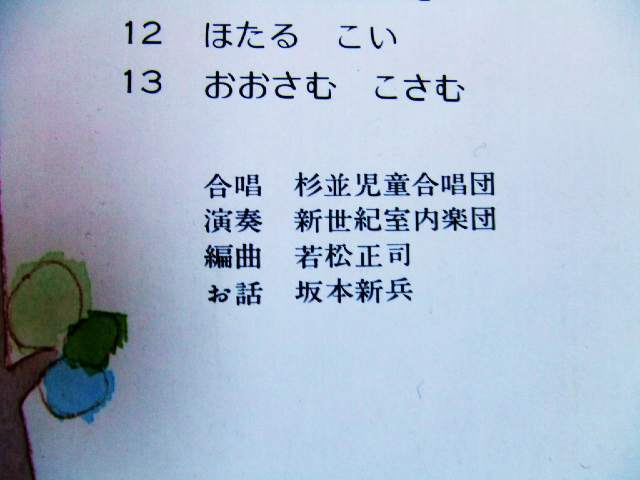 12 ほたる こい
13 おおさむ こさむ
合唱 杉並児童合唱団
演奏 新世紀室内楽団
編曲 若松正司
お話 坂本新兵